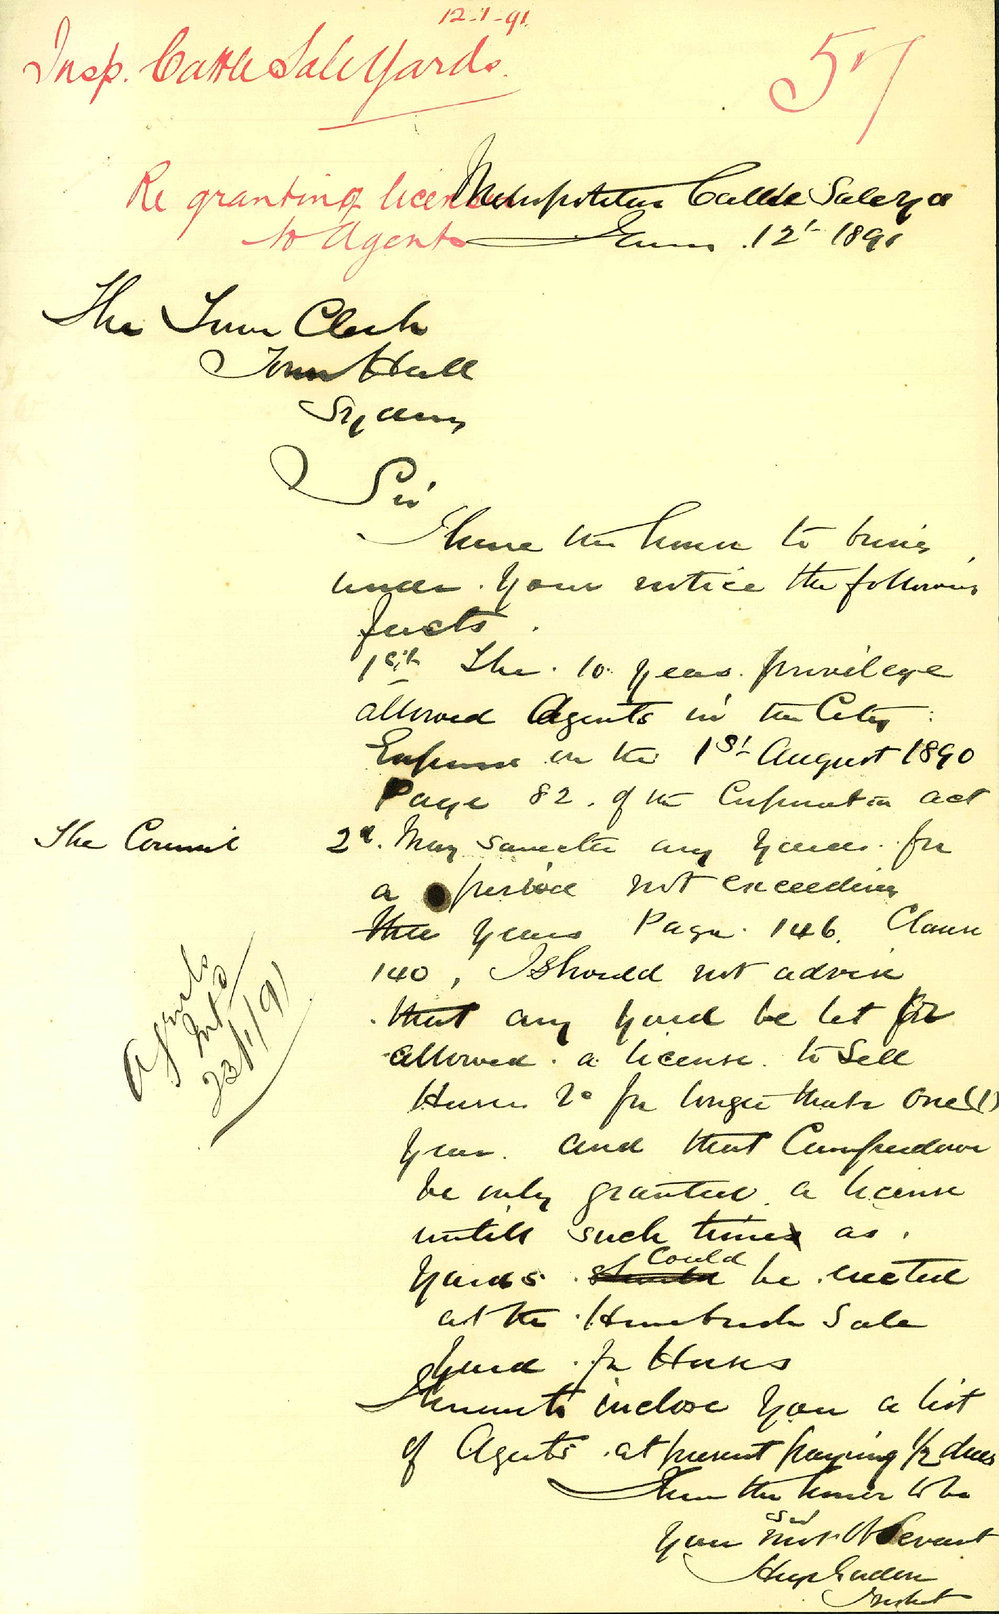 12-1-91
Insp. Cattle Sale Yards.
57
Re granting licenses
to Agents
Metropolitan Cattle Saleyds
12th 1891
The Town Clerk
Town Hall
Sydney
Sir
I have the honor to bring
under your notice the following
facts.
1st The 10 years privilege
allowed Agents in the City
Expires on the 1st August 1890
Page 82. of the Corporation act
The Council
2d. May sanction any yards for
a period not exceeding
three years Page 146. Clause
140, I should not advise
that any yard be let or
allowed a license to Sell
Horses &c for longer than One (1)
year. and that Camperdown
be only granted a license
untill such time as
yards could be erected
at the Homebush Sale
Yard for Horses
inclose you a list
of Agents at present paying 1/2 dues
I have the honor to be
Your most Obt Servant
Inspector
Agents
Mtd
23/1/91